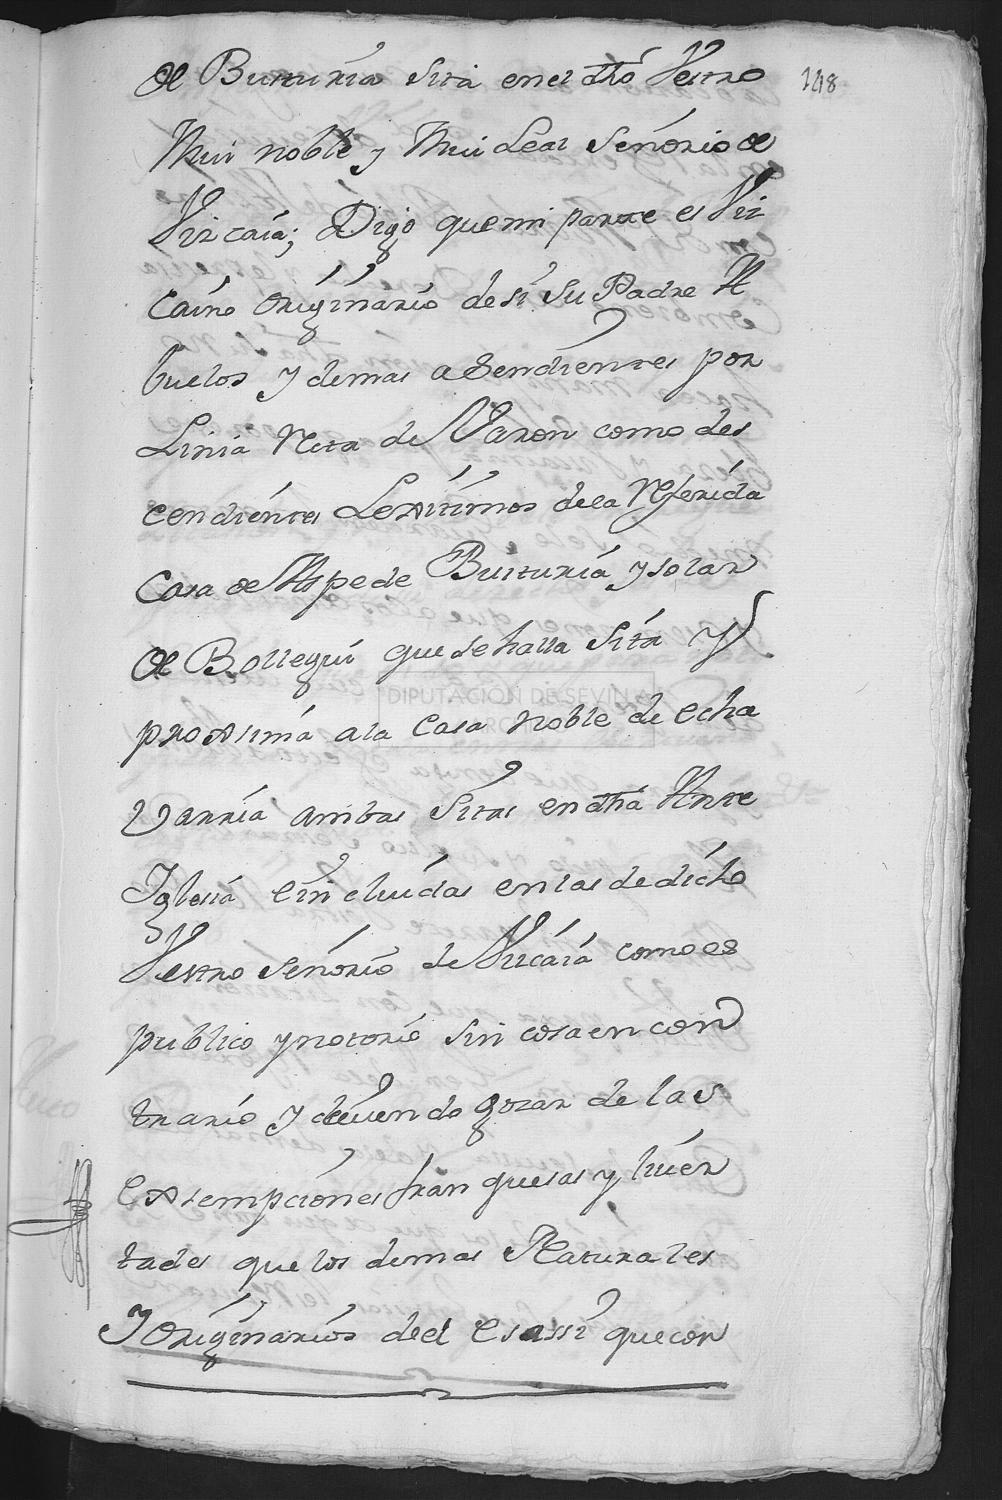 de Busturia sita en el dho Vestro
148
Mui noble y Mui Leal señorio de
Vizcaia; Digo que mi parte es Viz
caino originario de si su Padre A
buelos y demas asendientes por
Linia Reta de Varon como des
cendientes Lexitimos de la Referida
Casa de Aspe de Busturia y solar
de Bollegui que de halla sita y
proxsima a la Casa noble de echa
Varria ambas sitas en dha Ante
Iglesia e in cluidas en las de dicho
Vestro señorio de Vizcaia como es
publico y notorio sin cosa en con
trario y deviendo gozar de las
exsempciones franquesas y liver
tades que los demas Naturales
Y originarios de el es assi que con
DIPUTACIÓN DE SEVILLA